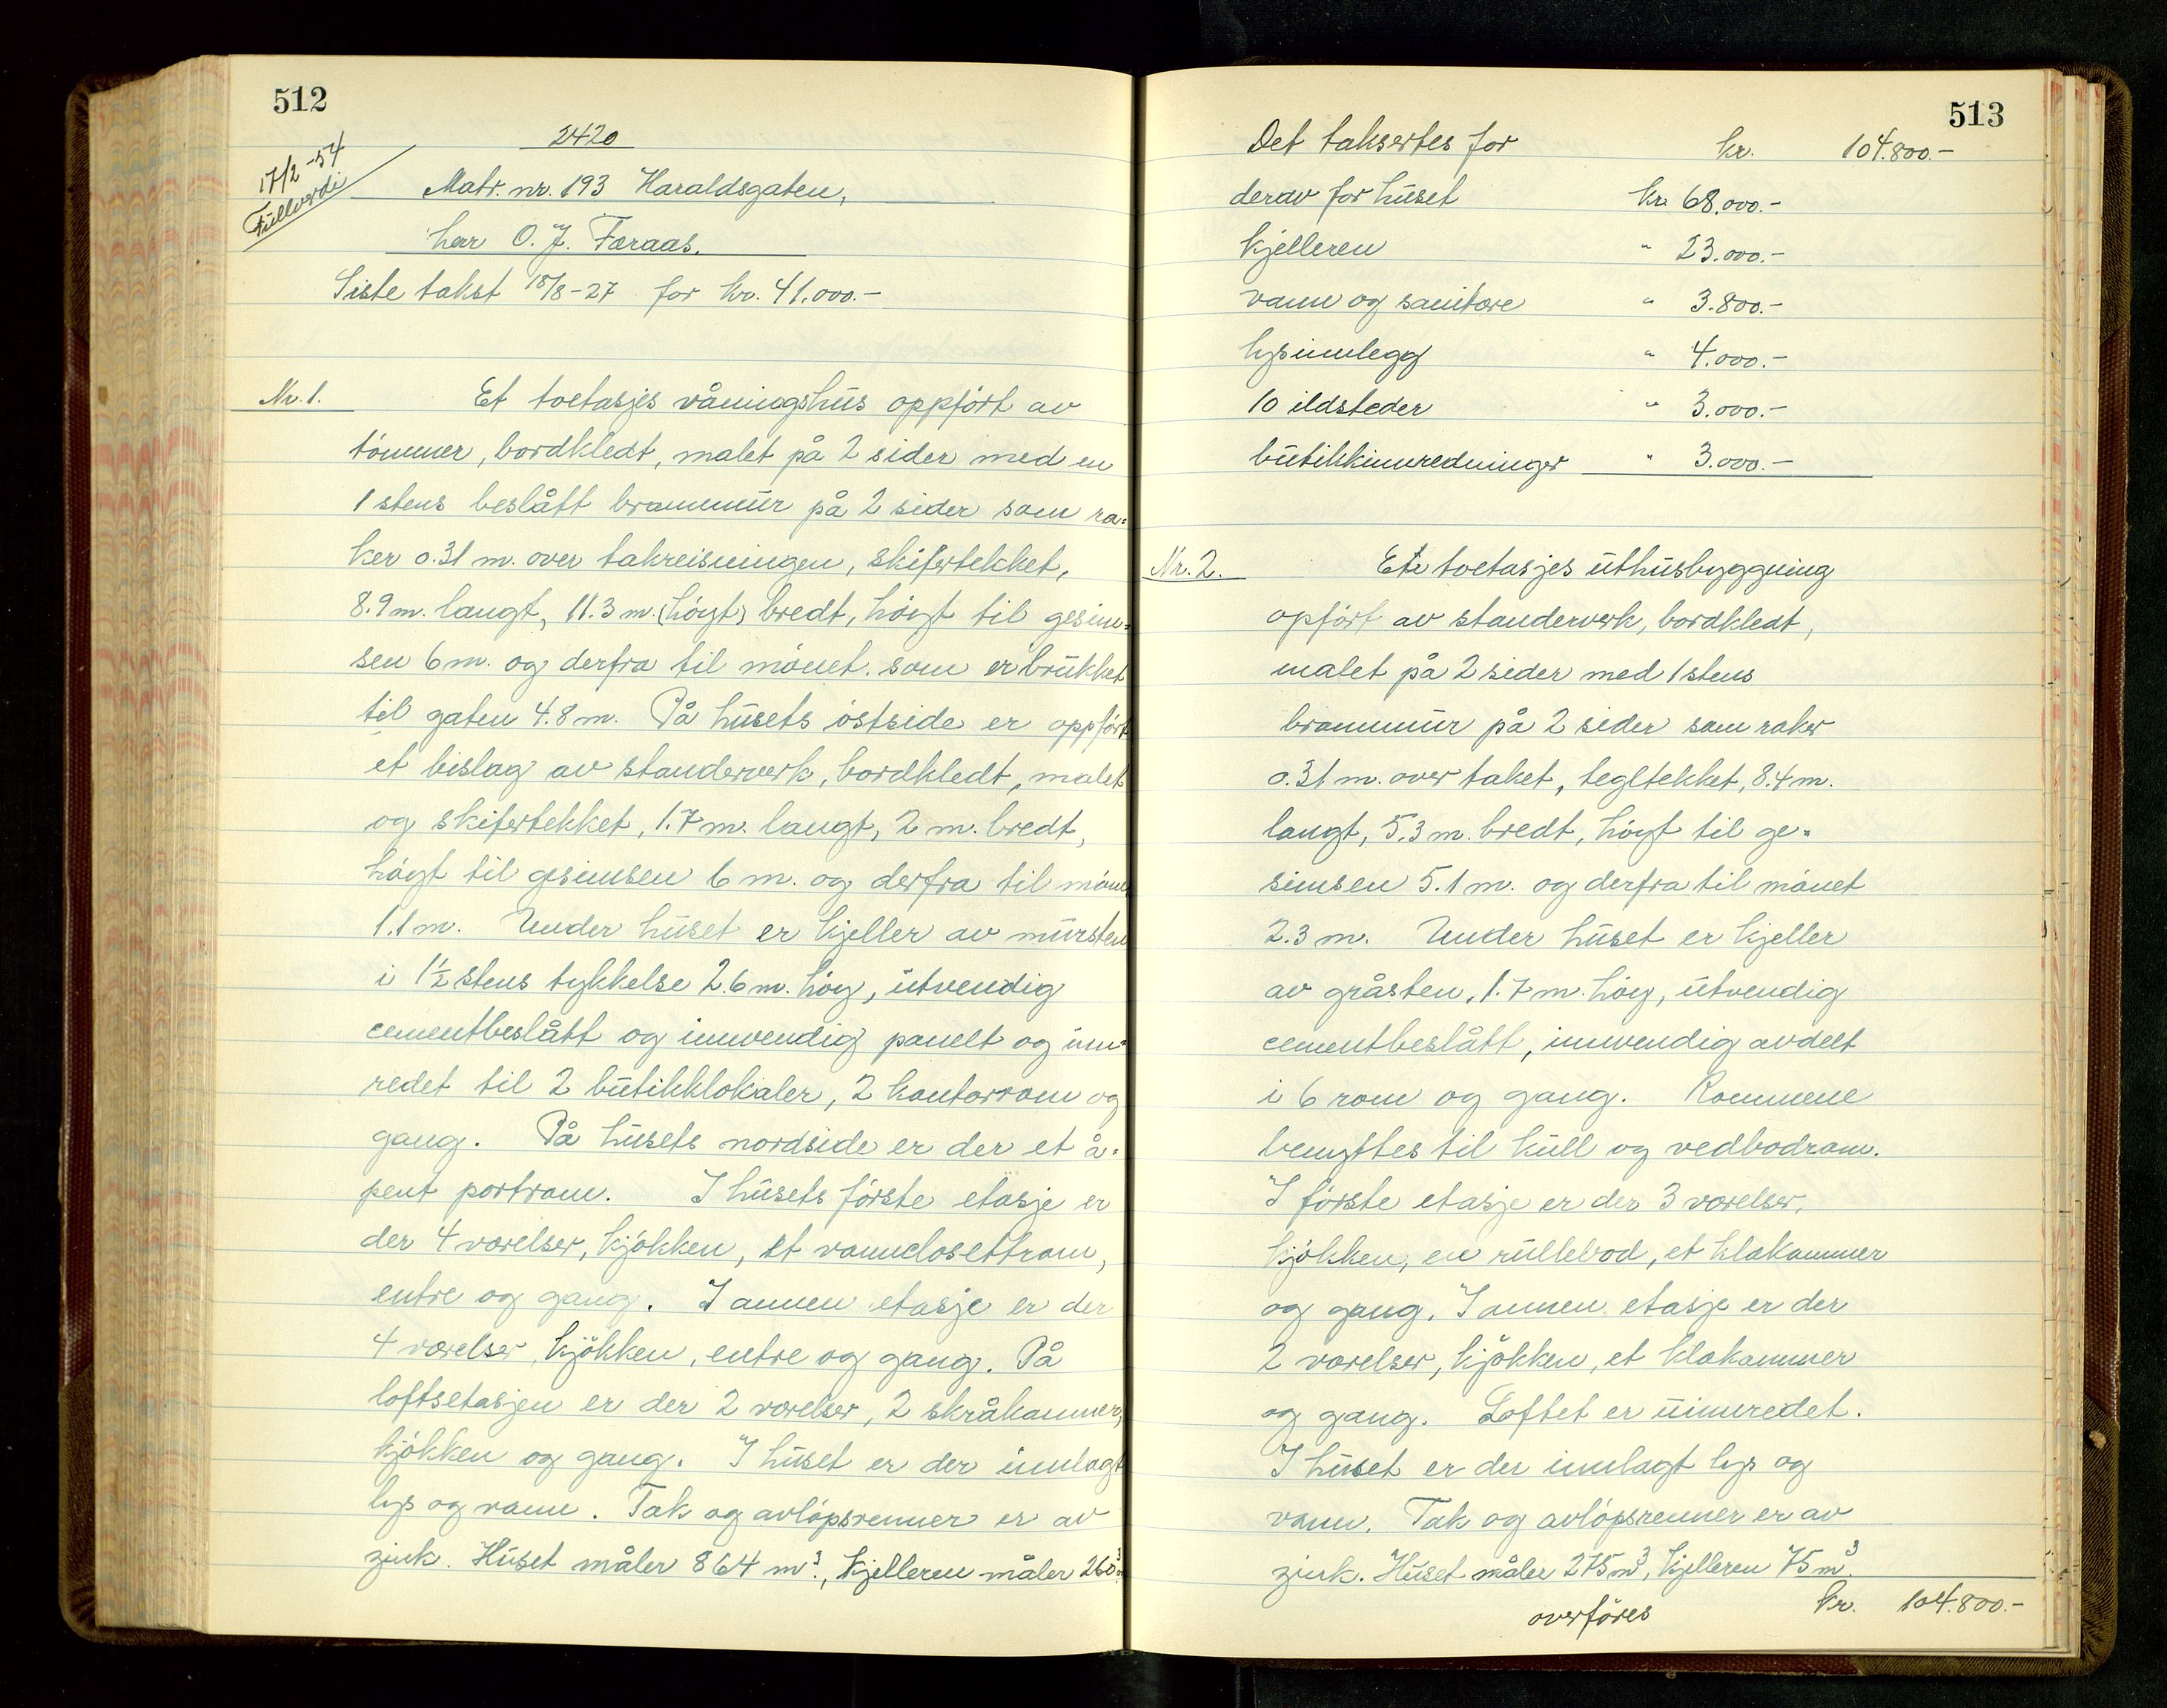 512
2420
17/2-54
Fullverdi
Matr. nr. 193 Haraldsgaten,
herr O. J. Færaas.
Siste takst 18/8-27 for kr. 41.000.-
Nr. 1. Et toetasjes våningshus oppført av
tømmer, bordkledt, malet på 2 sider med en
1 stens beslått brannmur på 2 sider som ra=
ker 0.31 m. over takreisningen, skifertekket,
8.9 m. langt, 11.3 m. (høgt) bredt, høigt til gesim=
sen 6 m. og derfra til mønet som er brukket
til gaten 4.8 m. På husets østside er oppført
et bislag av standerverk, bordkledt, malet
og skifertekket, 1.7 m. langt, 2 m. bredt,
høgt til gesimsen 6 m. og derfra til mønet
1.1 m. Under huset er kjeller av mursten
i 1½ stens tykkelse 2.6 m. høg, utvendig
cementbeslått og innvendig panelt og inn=
redet til 2 butikklokaler, 2 kontorrom og
gang. På husets nordside er der et å=
pent portrom. I husets første etasje er
der 4 værelser, kjøkken, et vannclosettrom,
entre og gang. I annen etasje er der
4 værelser, kjøkken, entre og gang. På
loftsetasjen er der 2 værelser, 2 skråkammer,
kjøkken og gang. I huset er der innlagt
lys og vann. Tak og avløpsrenner er av
zink. Huset måler 864 m³, kjelleren måler 260 m³.
513
Det taksertes for kr. 104.800.-
derav for huset kr. 68.000.-
kjelleren " 23.000.-
vann og sanitære " 3.800.-
lysinnlegg " 4.000.-
10 ildsteder " 3.000.-
butikkinnredninger " 3.000.-
Nr. 2. Et toetasjes uthusbyggning
opført av standerverk, bordkledt,
malet på 2 sider med 1 stens
brannmur på 2 sider som raker
0.31 m. over taket, tegltekket, 8.4 m.
langt, 5.3 m. bredt, høgt til ge=
simsen 5.1 m. og derfra til mønet
2.3 m. Under huset er kjeller
av gråsten, 1.7 m. høg, utvendig
cementbeslått, innvendig avdelt
i 6 rom og gang. Rommene
benyttes til kull og vedbodrom.
I første etasje er der 3 værelser,
kjøkken, en rullebod, et klækammer
og gang. I annen etasje er der
2 værelser, kjøkken, et klækammer
og gang. Loftet er uinnredet.
I huset er der innlagt lys og
vann. Tak og avløpsrenner er av
zink. Huset måler 275 m³, kjelleren 75 m³.
overføres kr. 104.800.-